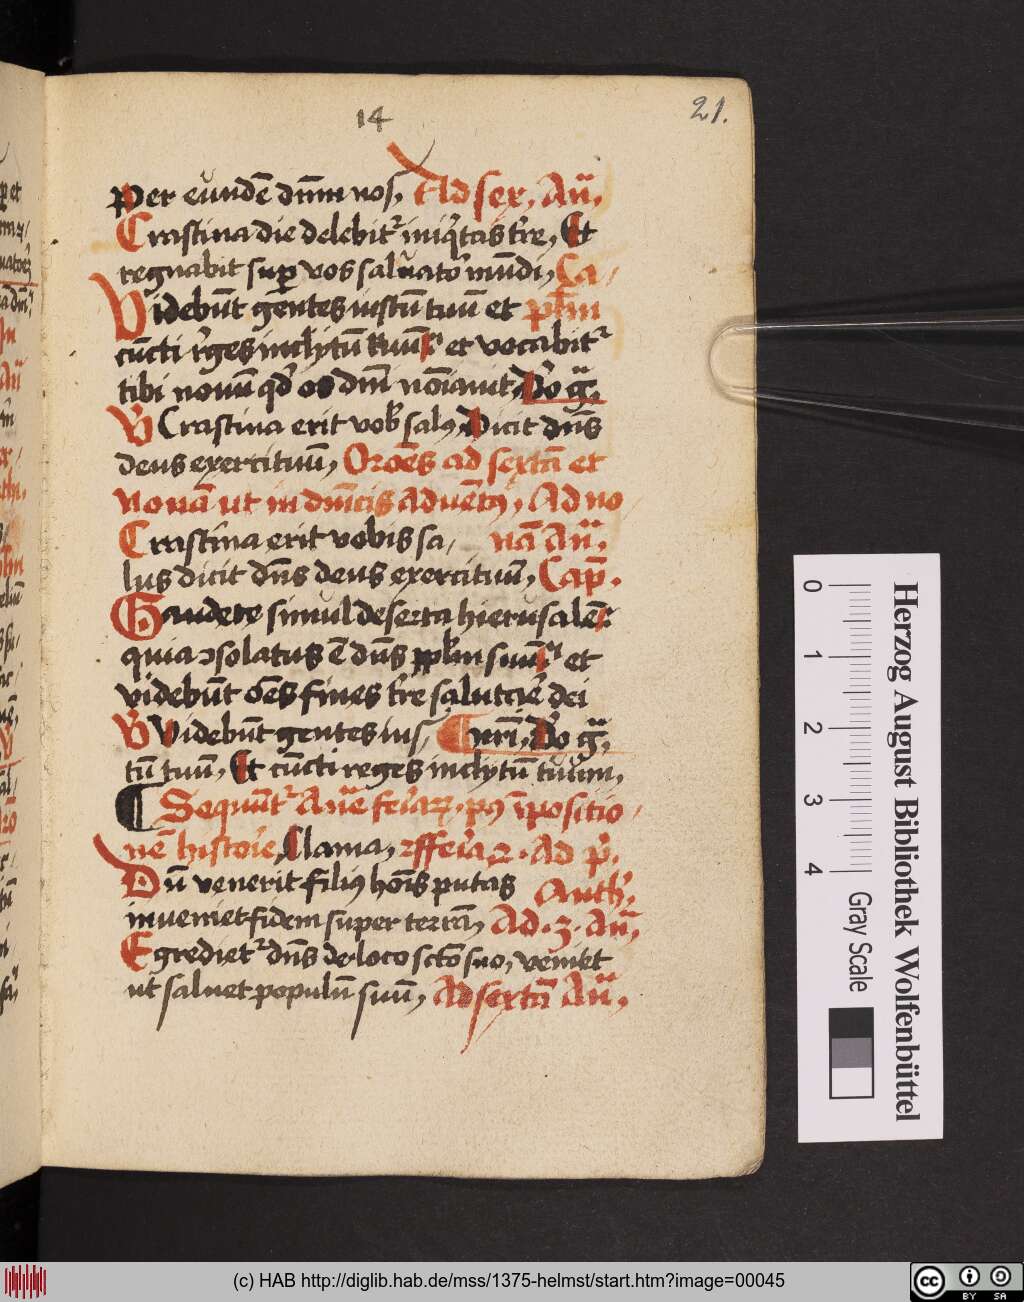 14
21.
Per eūndē dn̄m nos, Ad sex, Añ,
Crastina die delebit᷑ iniq̇tas t're, Et
regnabit sup̱ vos saluato᷑ mūdi, Ca-
Videbūt gentes iustū tuū et p̄lm
cūcti r̓ges inclytū tuū et vocabit᷑
tibi nouū qd̓ os dn̄i noīauit, Do gr̄a,
V Crastina erit vob̓ salꝰ, Dicit dn̄s
deus exercituū, Oroēs ad sextā et
nonā ut in dn̄icis aduētꝰ, Ad no-
Crastina erit vobis sa- nā Añ,
lus dicit dn̄s deus exercituū, Cap̄.
Gaudete simul deserta hierusalē
quia ꝯsolatus ē dn̄s pp̄lm suū et
videbūt oēs fines t're salutare dei
V Videbūt gentes ius- Do gr̄a,
tū tuū, Et cūcti reges inclytū tuum,
Sequūt᷑ Añe feriaꝝ, pꝰ īpositio-
nē historie, Clama, Ad p̓.
Dū venerit filiꝰ hoīs putas Anth̓,
inueniet fidem super terrā, Ad. 3. Añ,
Egrediet᷑ dn̄s de loco scto suo, veniet
ut saluet populū suū, Ad sextā Añ,
0 1 2 3 4
Gray Scale
Herzog August Bibliothek Wolfenbüttel
(c) HAB http://diglib.hab.de/mss/1375-helmst/start.htm?image=00045
cc BY SA